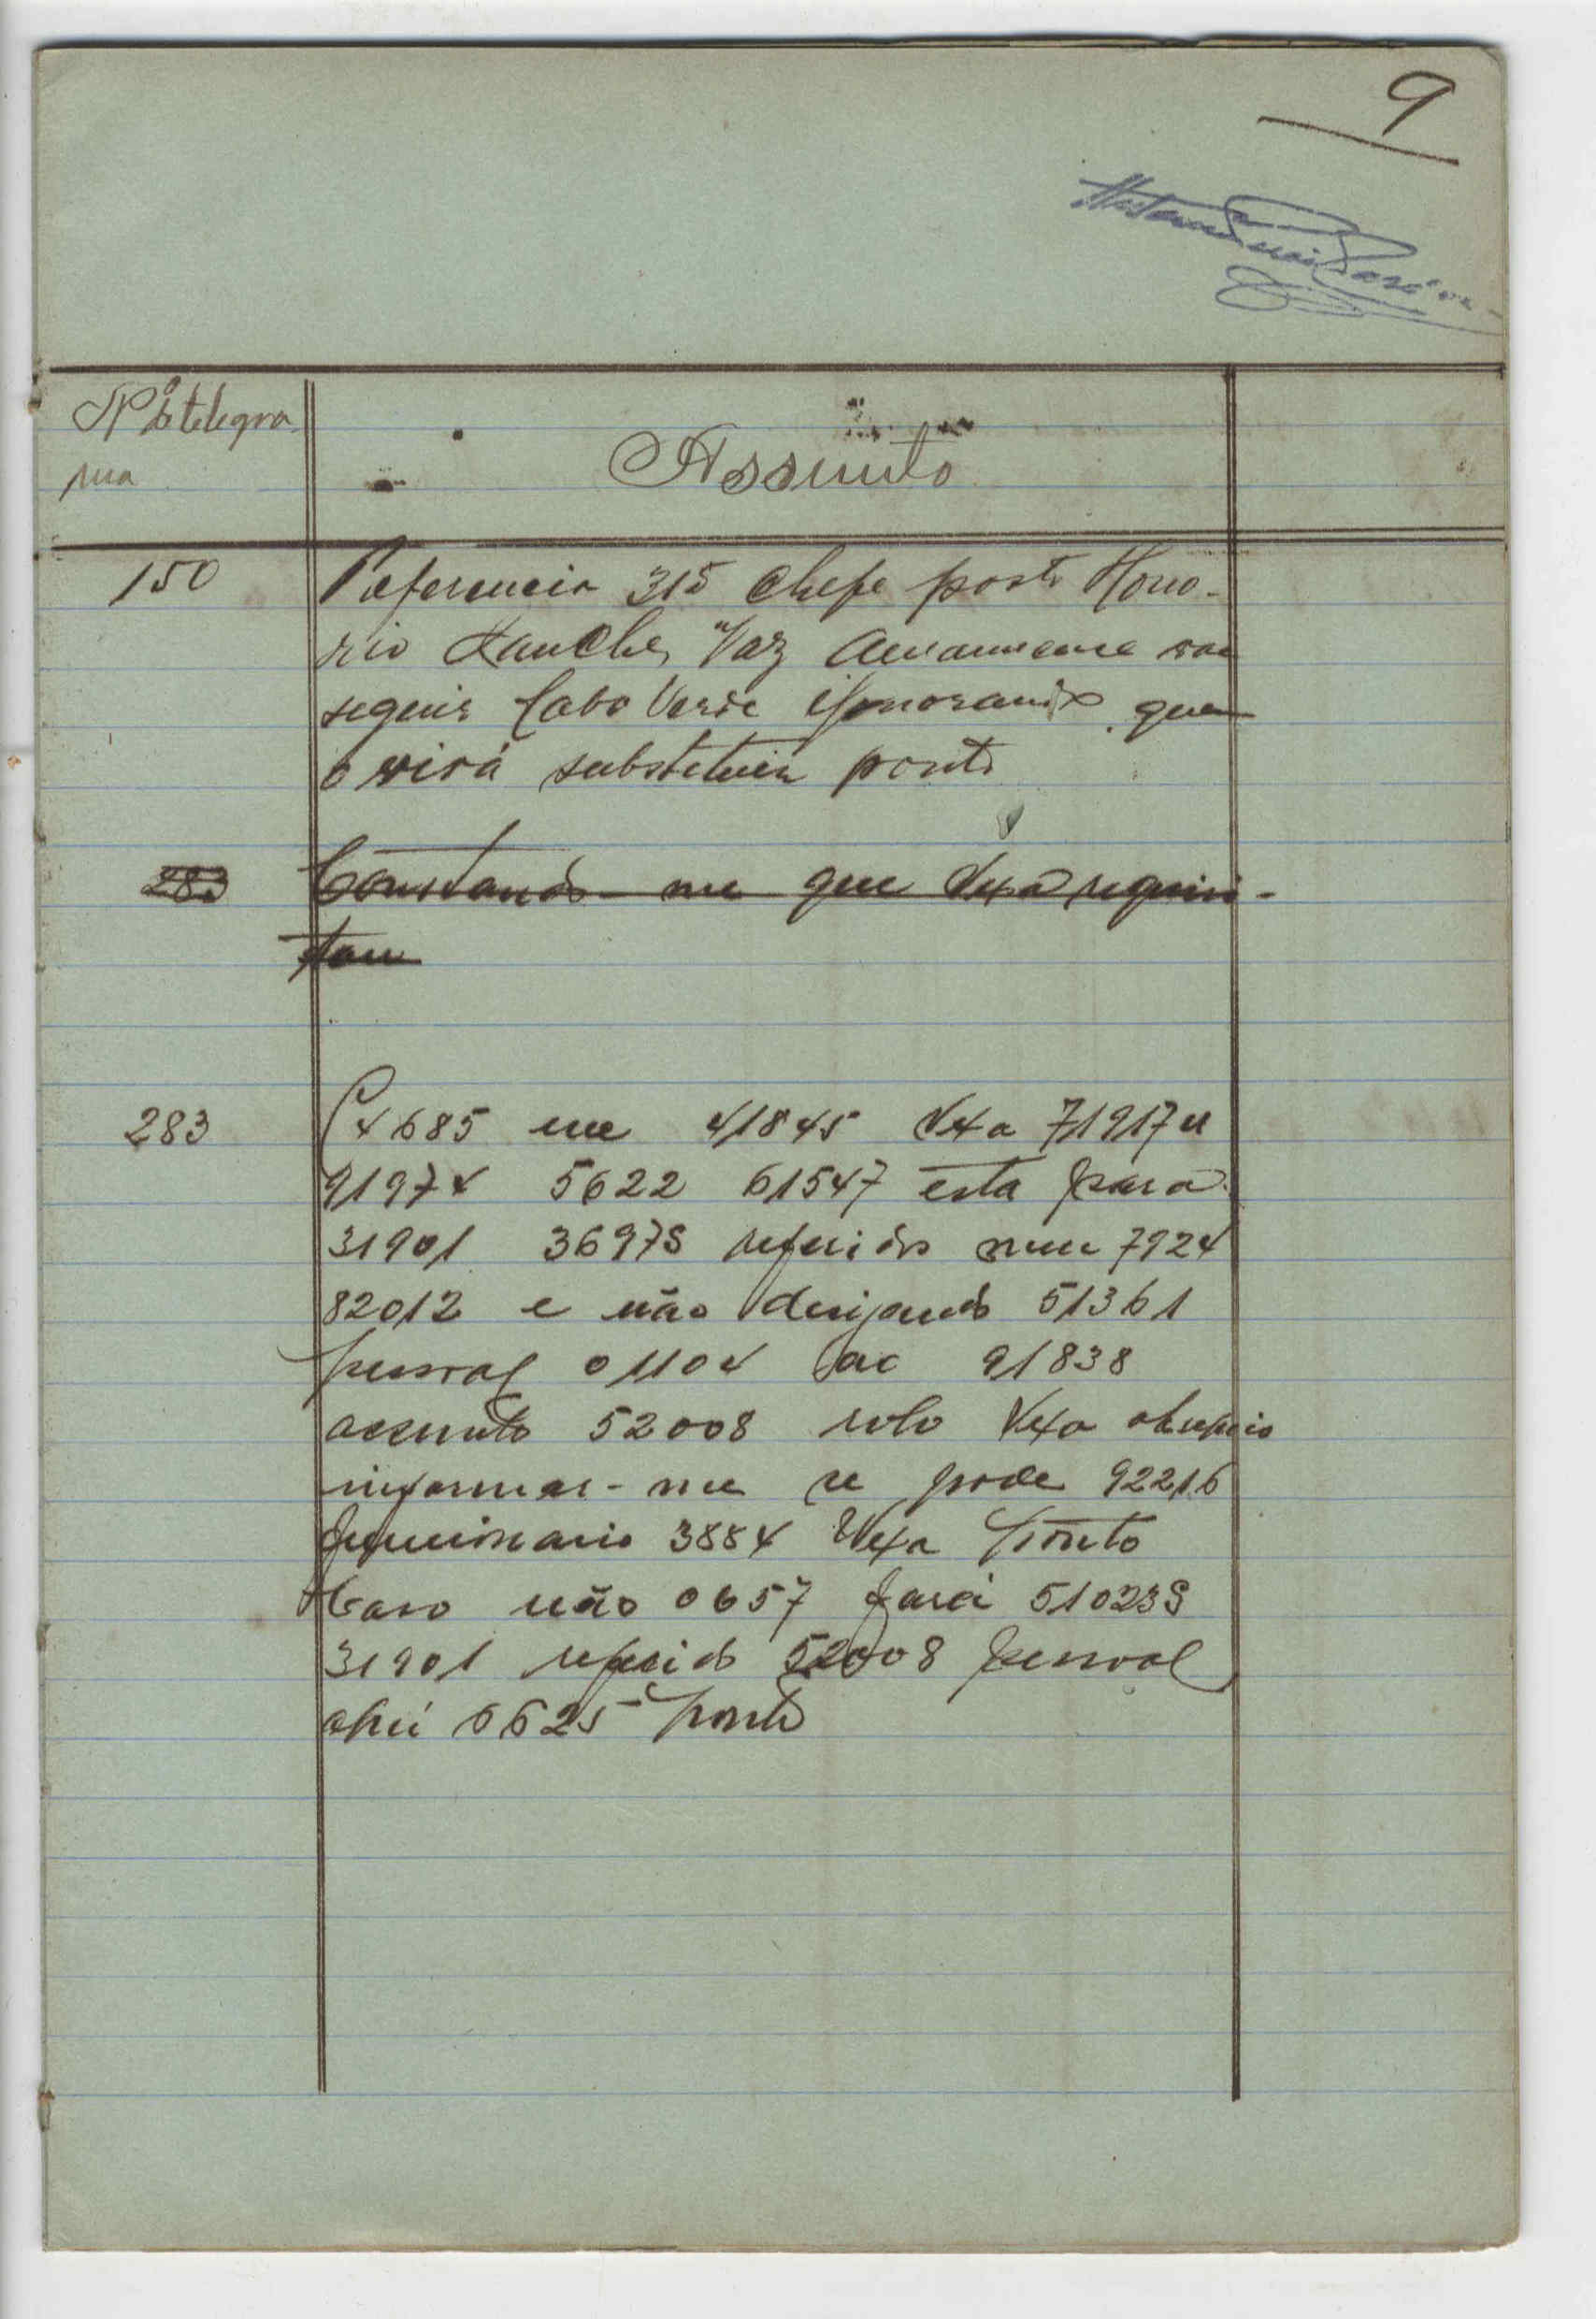 9
Nº do telegra
ma
Assunto
150 Referencia 315 Chefe posto Hono-
rio Sanches Vaz Amanuense vae
seguir Cabo Verde ignorando quem
o virá substituir ponto
283 Constando-me que Vexa requisi-
tou
283 C4685 me 41845 Vexa 71917
91974 5622 61547 esta para
31901 36973 referido num 7924
82012 e não desejando 51361
pessoal 01104 ao 91838
assunto 52008 rolo Vexa obsequio
informar-me se pode 92216
funcionario 3884 Vexa ponto
Caso não 0657 fará 51023S
31901 referido 52008 pessoal
ahi 6625 ponto